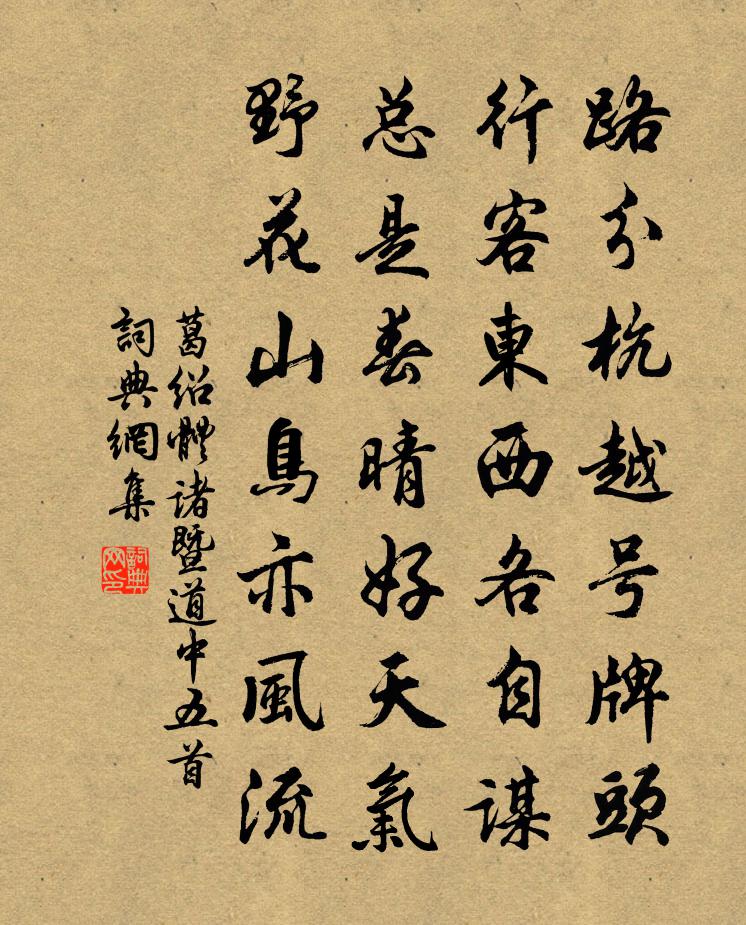 路分杭越号牌頭
行客東西各自謀
总是春晴好天氣
野花山鳥亦風流
葛绍體诸暨道中五首
詞典網集
詞典网印